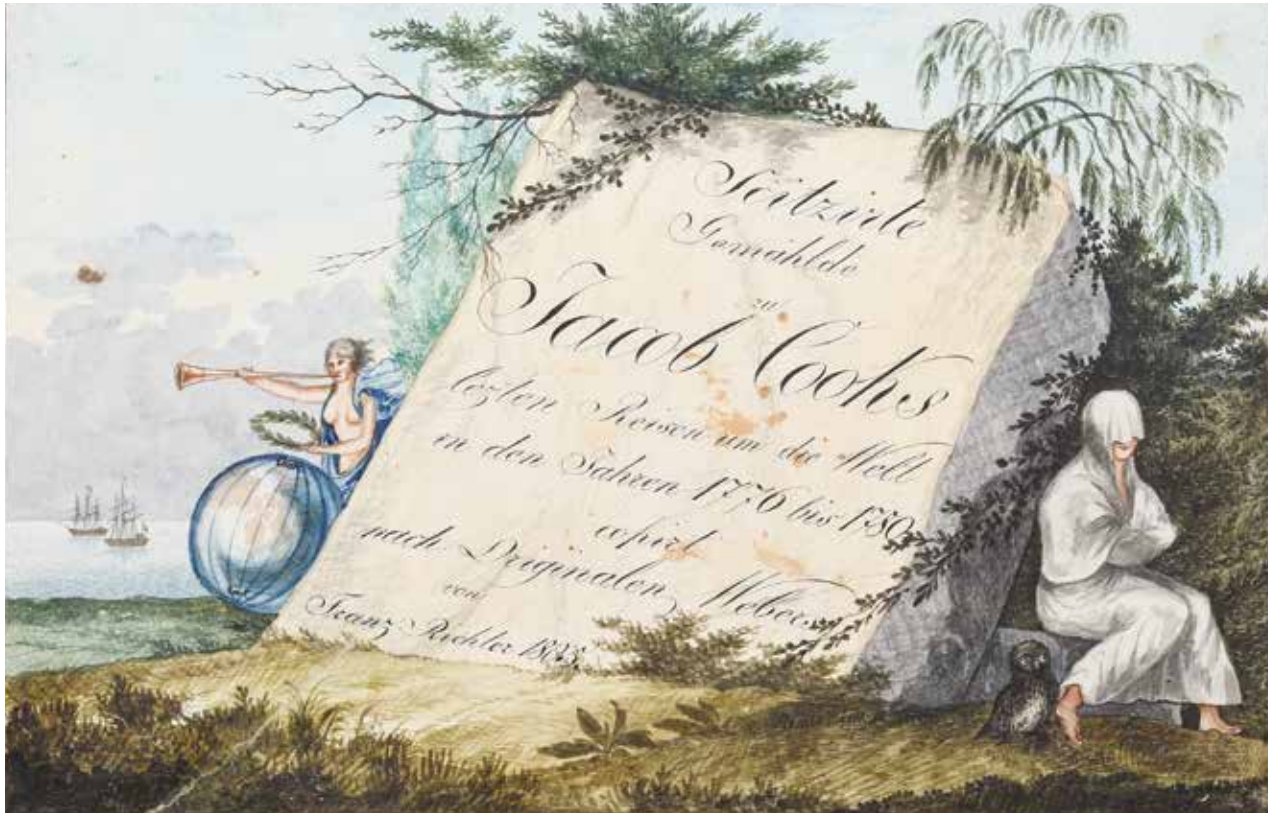 Scitzirte
Gemählde
zu
Jacob Cooks
lezten Reisen um die Welt
in den Jahren 1776 bis 1780.
copirt
nach Originalen Webers
von
Franz Richter